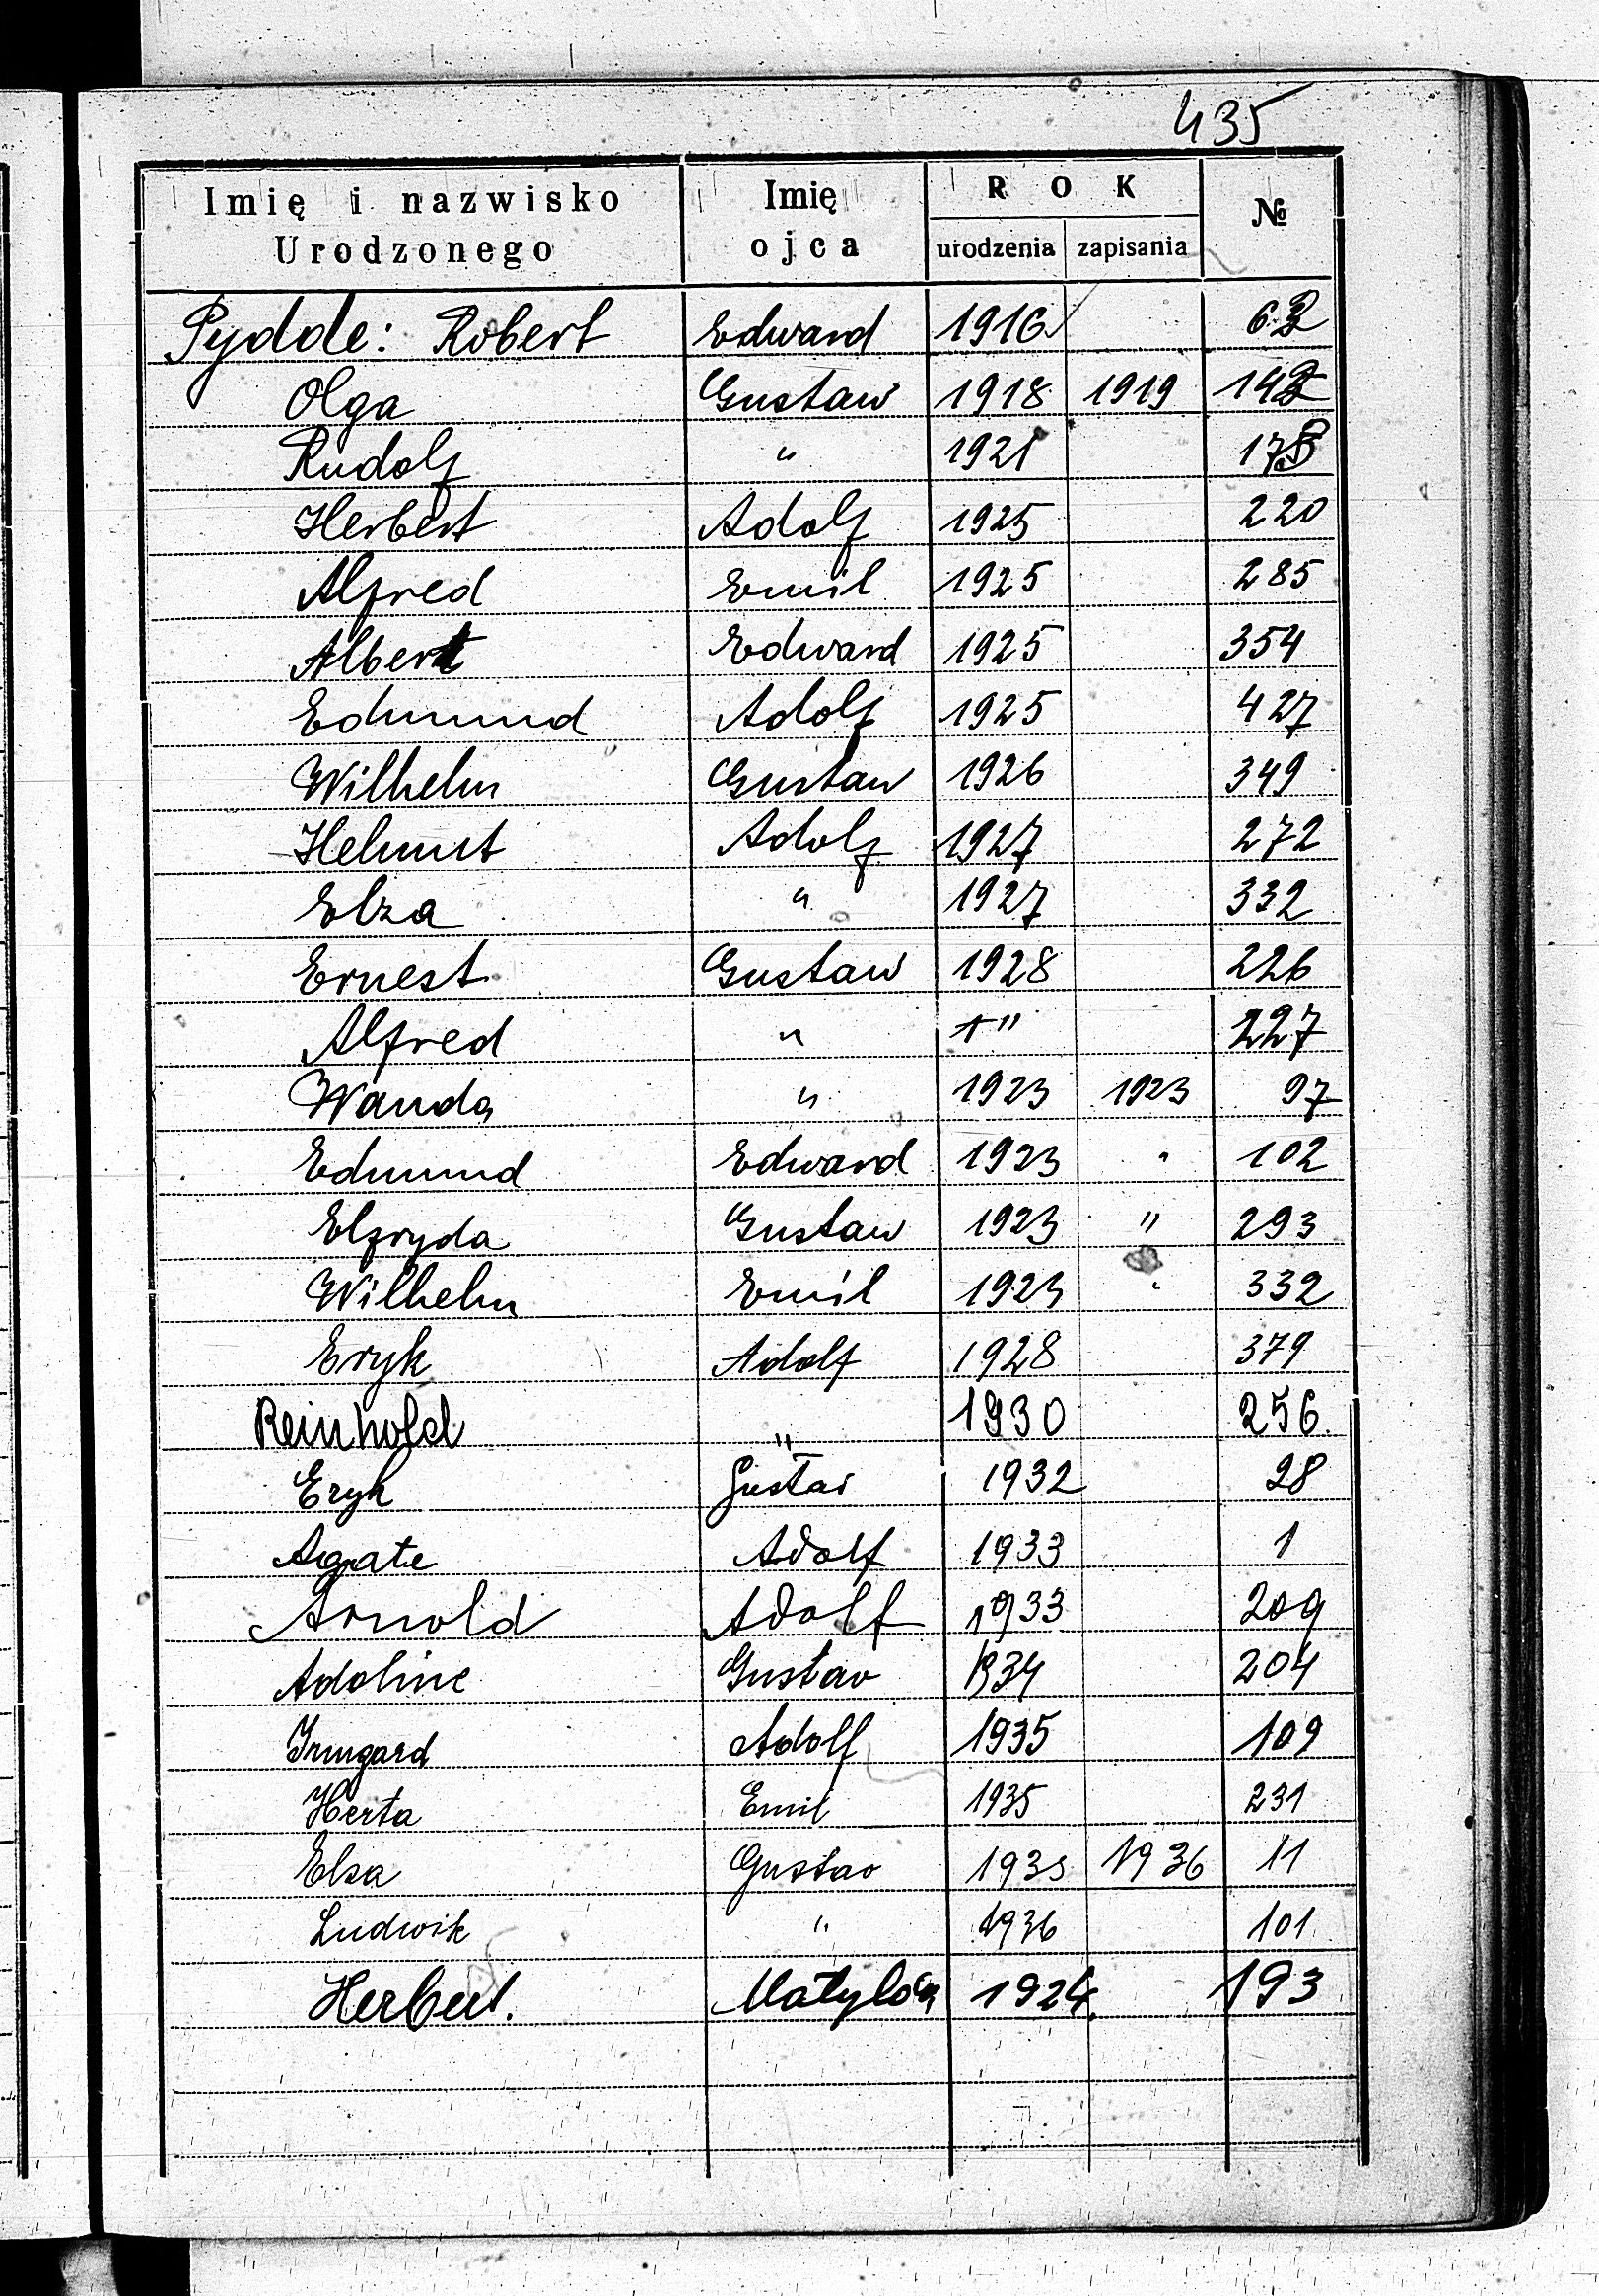 435
Imię i nazwisko Urodzonego | Imię ojca | ROK urodzenia | zapisania | №
Pydde: Robert Edward 1916
Olga Gustaw 1918 1919
Rudolf " 1921
Herbert Adolf 1925 220
Alfred Emil 1925 285
Albert Edward 1925 354
Edmund Adolf 1925 427
Wilhelm Gustaw 1926 349
Helmut Adolf 1927 272
Elza " 1927 332
Ernest Gustaw 1928 226
Alfred " " 227
Wanda " 1923 1923 97
Edmund Edward 1923 " 102
Elfryda Gustaw 1923 " 293
Wilhelm Emil 1923 " 332
Eryk Adolf 1928 379
Reinhold " 1930 256
Eryk 1932 28
Agate Adolf 1933 1
Arnold Adolf 1933 209
Adoline Gustav 1934 204
Irmgard Adolf 1935 109
Herta Emil 1935 231
Elsa Gustav 1935 1936 11
Ludwik " 1936 101
Herbert. Matylda 1924. 193